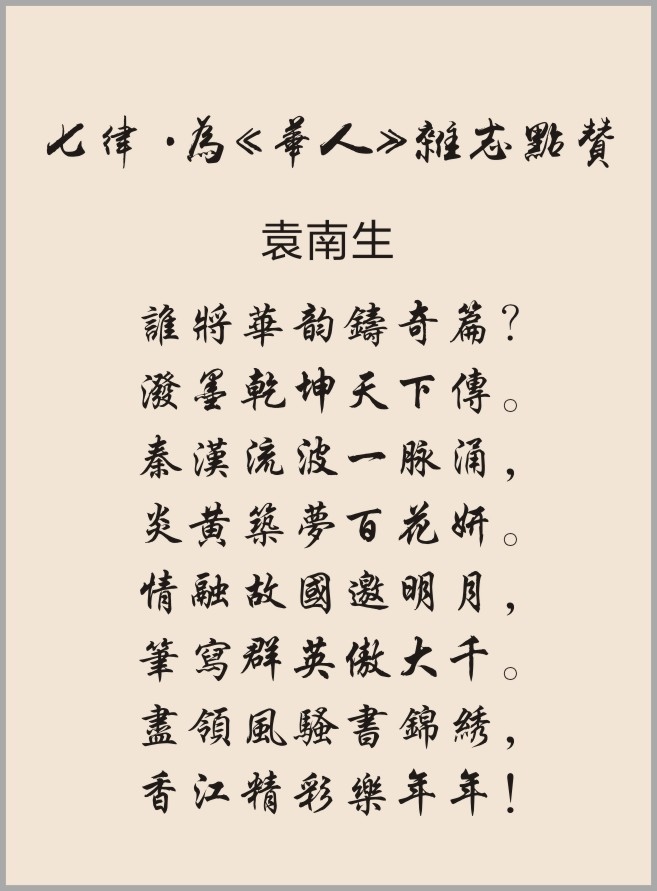 七律·為《華人》雜志點贊
袁南生
誰將華韵鑄奇篇?
潑墨乾坤天下傳。
秦漢流波一脉涌,
炎黄築夢百花妍。
情融故國邀明月,
筆寫群英傲大千。
盡領風騷書錦綉,
香江精彩樂年年!